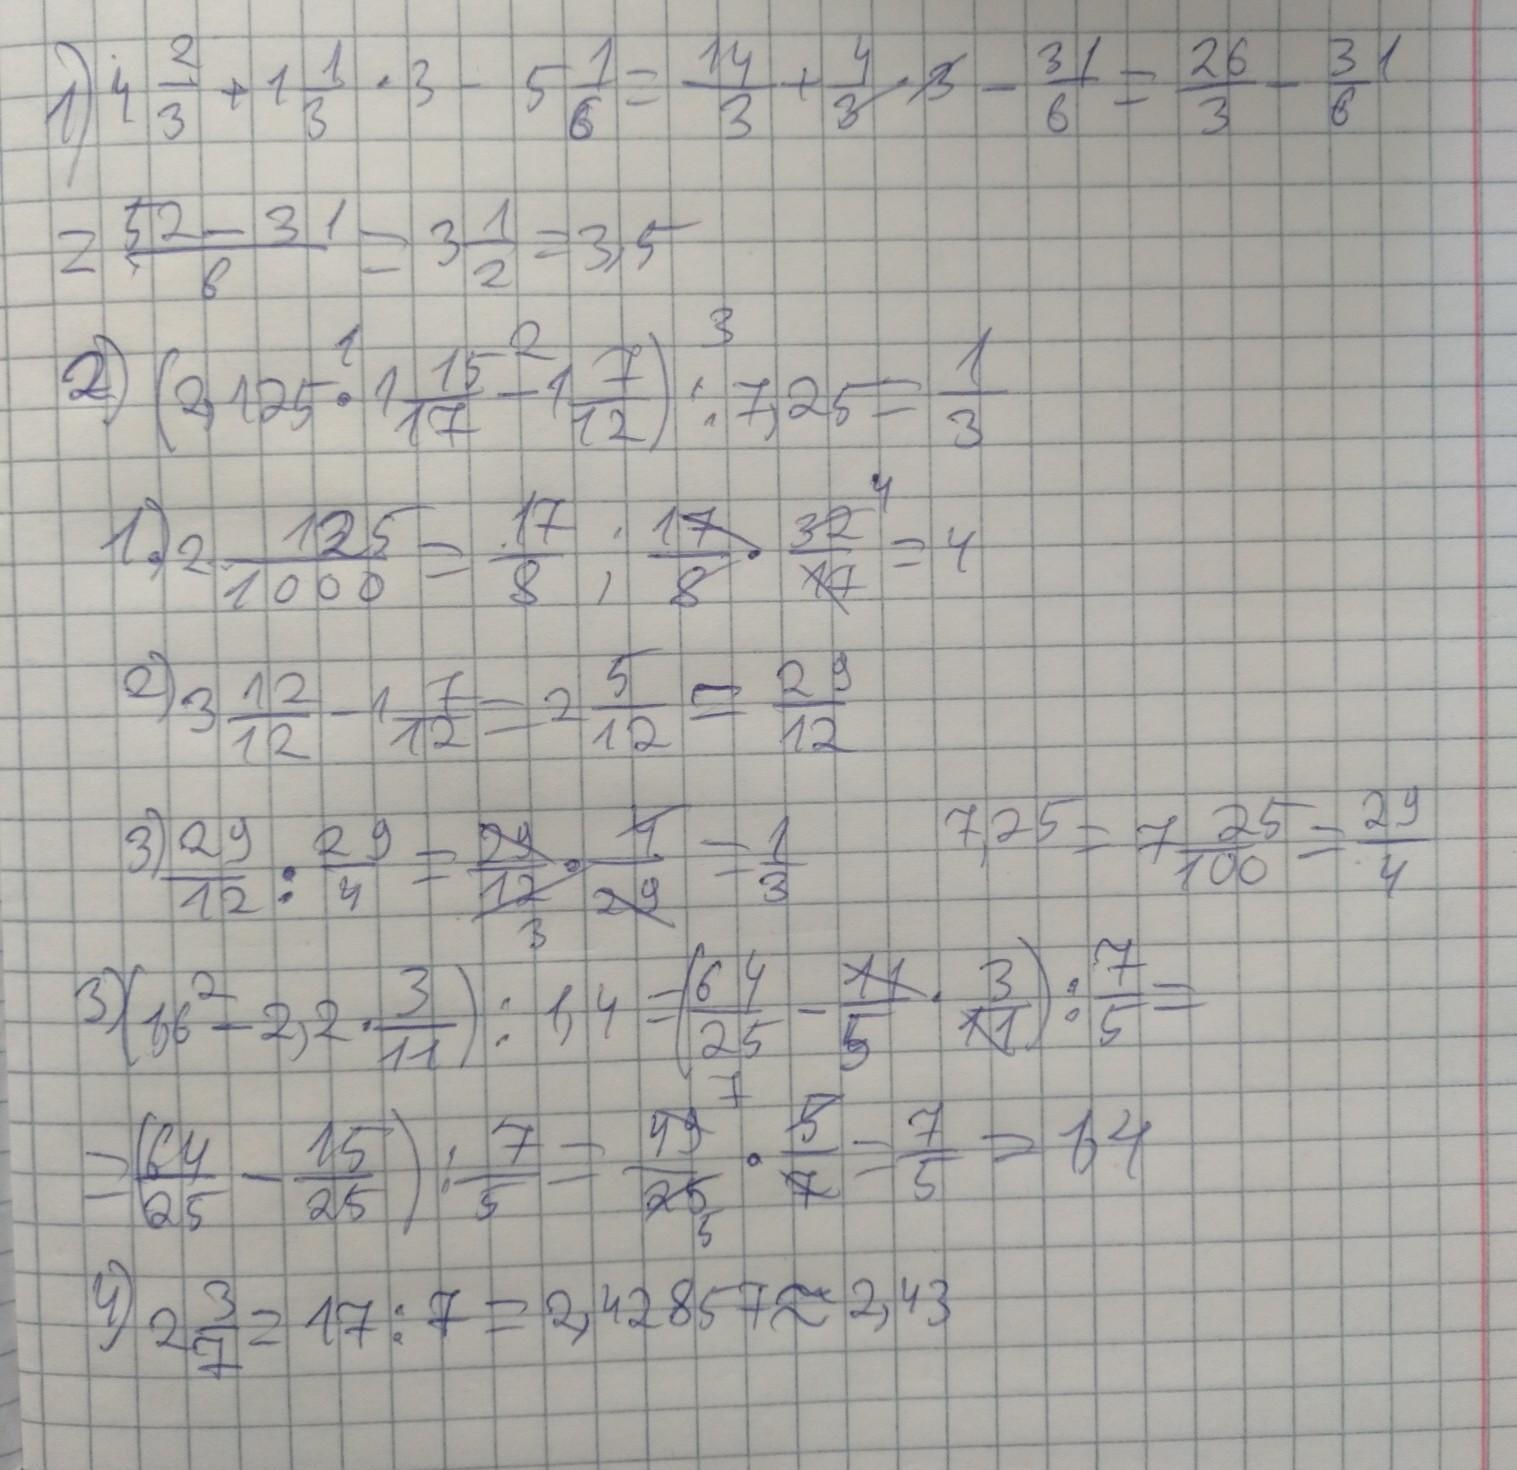 1) 4 2/3 + 1 1/3 · 3 - 5 1/6 = 14/3 + 4/3 · 3 - 31/6 = 26/3 - 31/6
= (52 - 31)/6 = 3 1/2 = 3,5
2) (2,125 · 1 15/17 - 1 7/12) : 7,25 = 1/3
1) 2 125/1000 = 17/8 ; 17/8 · 32/17 = 4
2) 3 12/12 - 1 7/12 = 2 5/12 = 29/12
3) 29/12 : 29/4 = 29/12 · 4/29 = 1/3 7,25 = 7 25/100 = 29/4
3) (1,6² - 2,2 · 3/11) : 1,4 = (64/25 - 11/5 · 3/11) : 7/5 =
= (64/25 - 15/25) : 7/5 = 49/25 · 5/7 = 7/5 = 1,4
4) 2 3/7 = 17 : 7 = 2,42857 ≈ 2,43